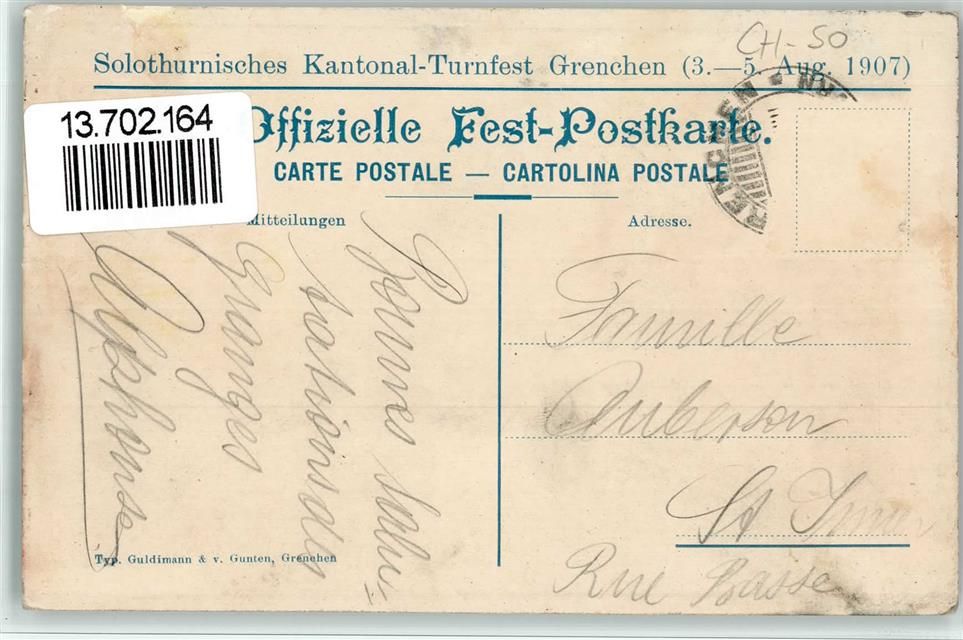 CH-SO
Solothurnisches Kantonal-Turnfest Grenchen (3.—5. Aug. 1907)
13.702.164
Offizielle Fest-Postkarte.
CARTE POSTALE — CARTOLINA POSTALE
Mitteilungen
Bonnes salu-
tations de
Granges
Alphonse
Adresse.
Famille
Auberson
St Imier
Rue Basse
Typ. Guldimann & v. Gunten, Grenchen